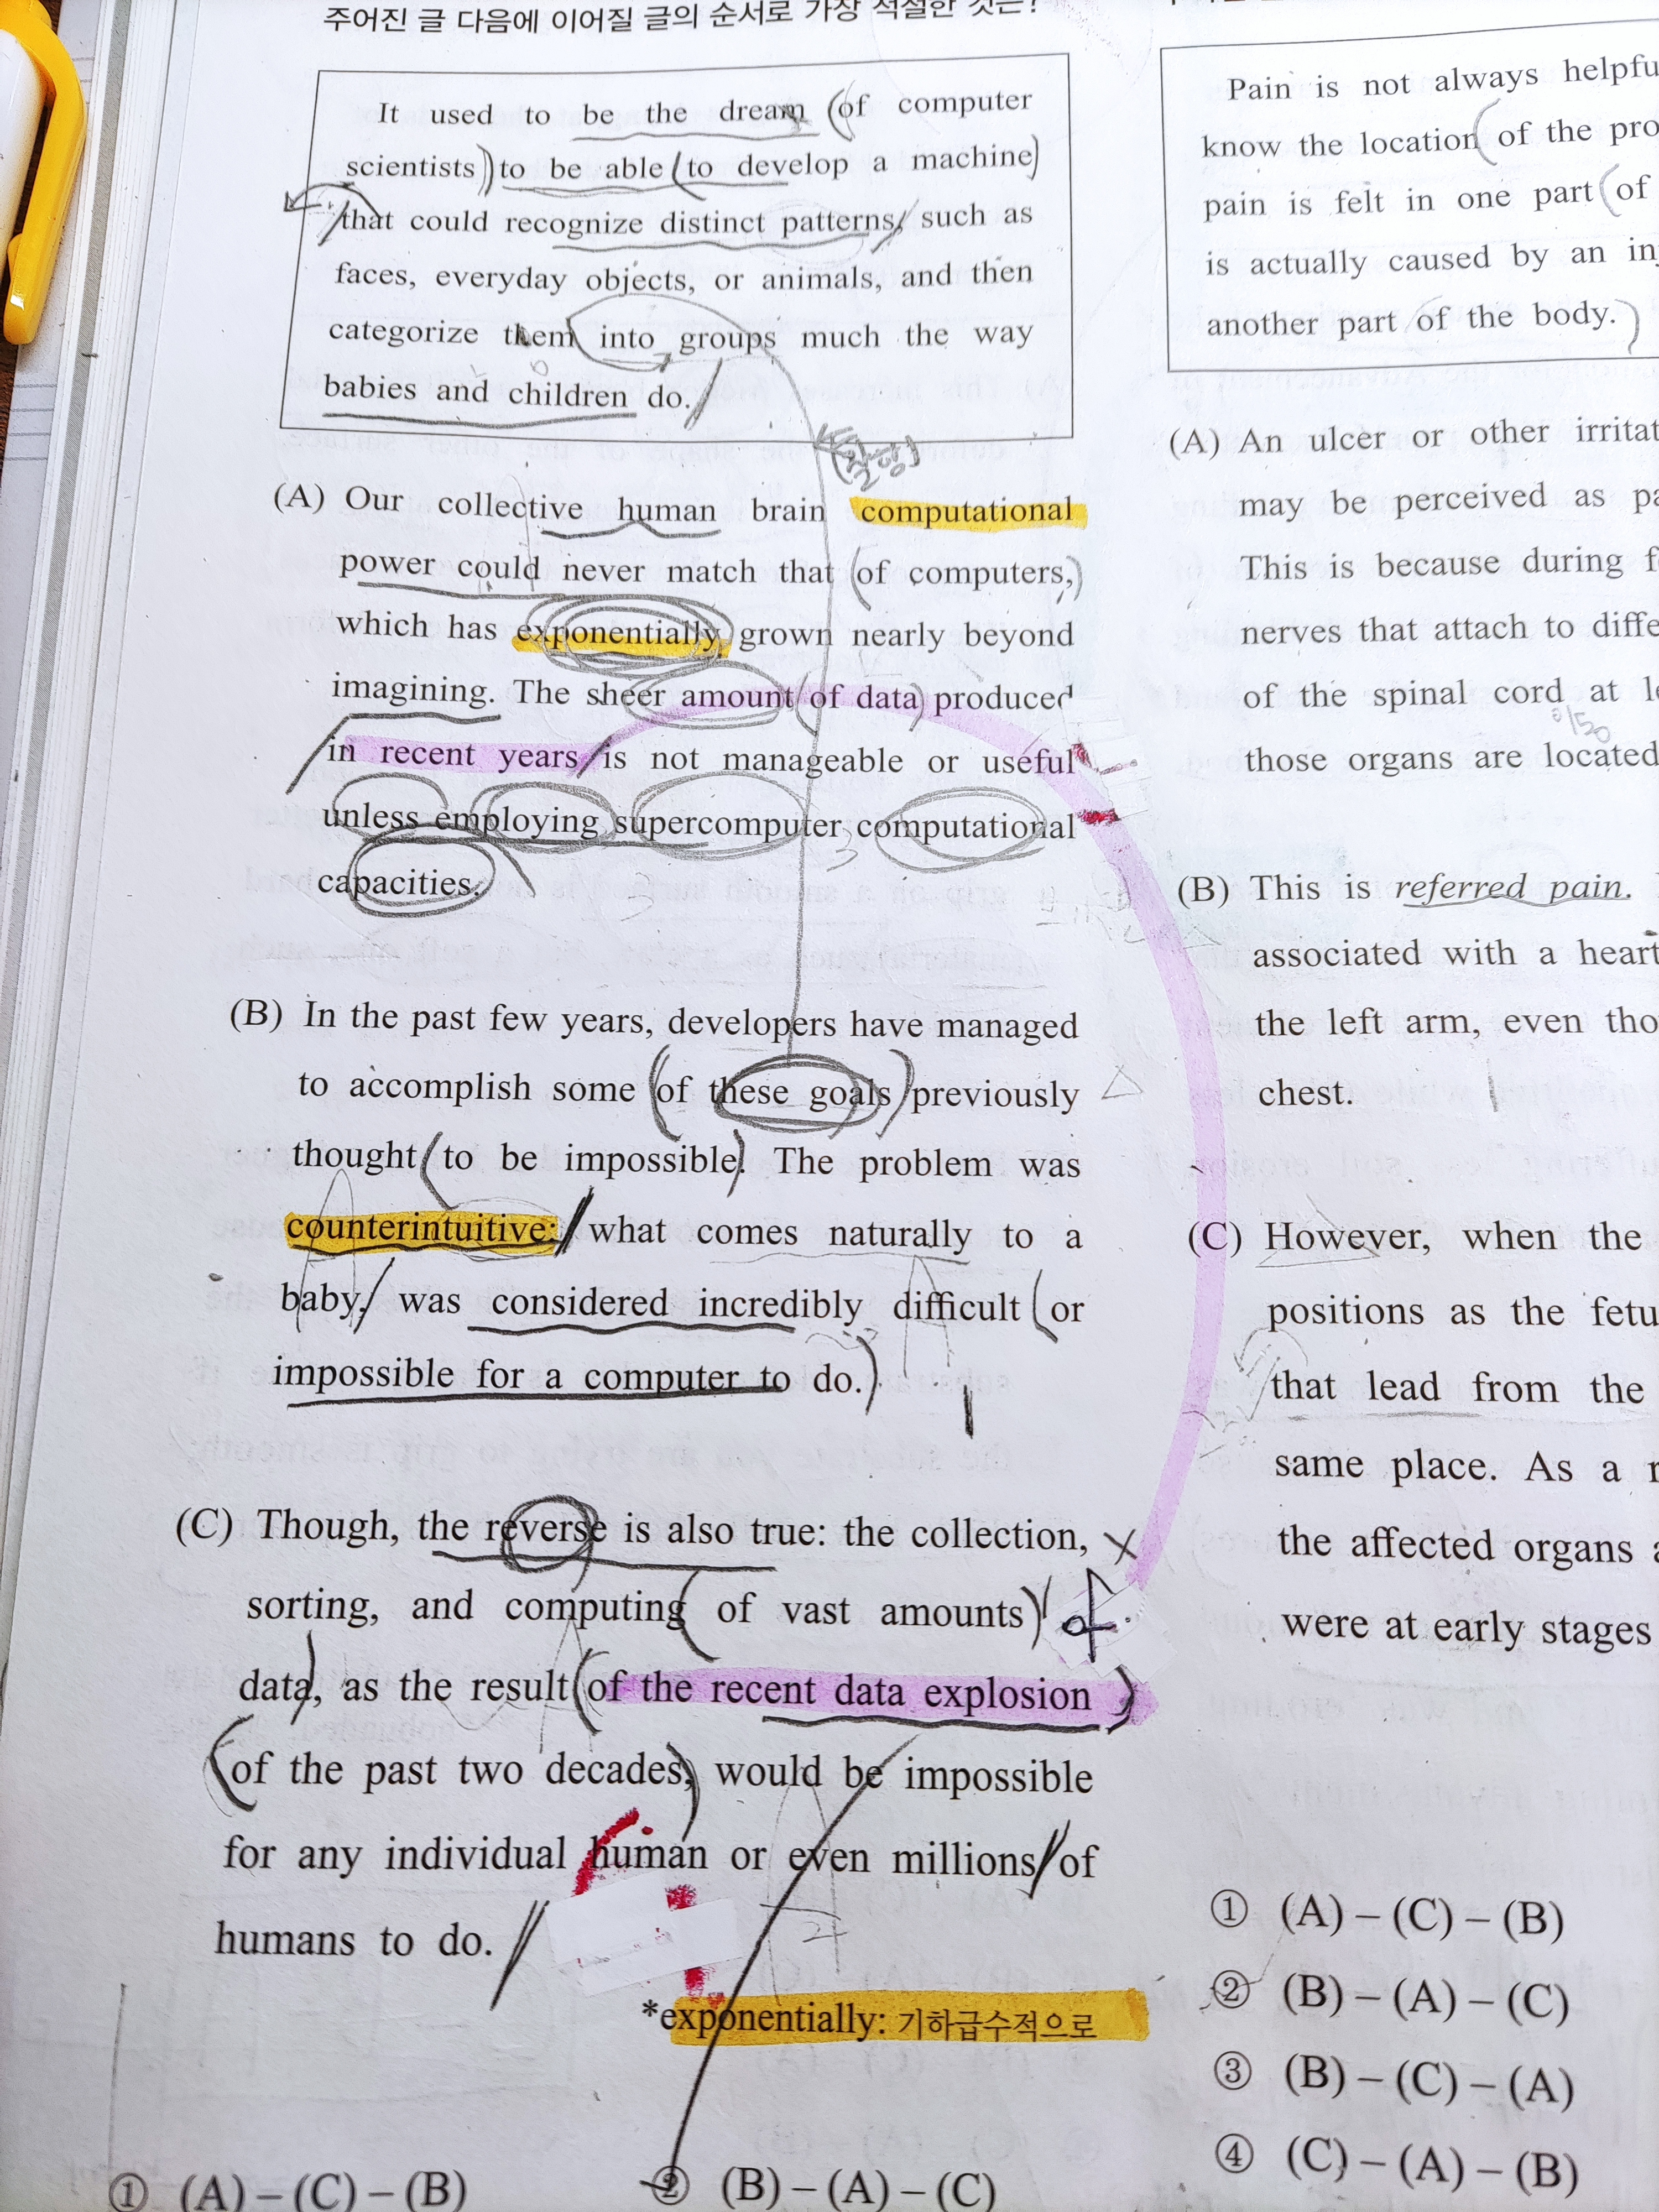 주어진 글 다음에 이어질 글의 순서로 가장 적절한 것은?
It used to be the dream of computer
scientists to be able to develop a machine
that could recognize distinct patterns, such as
faces, everyday objects, or animals, and then
categorize them into groups much the way
babies and children do.
(A) Our collective human brain computational
power could never match that of computers,
which has exponentially grown nearly beyond
imagining. The sheer amount of data produced
in recent years is not manageable or useful
unless employing supercomputer computational
capacities.
(B) In the past few years, developers have managed
to accomplish some of these goals previously
thought to be impossible. The problem was
counterintuitive: what comes naturally to a
baby, was considered incredibly difficult or
impossible for a computer to do.
(C) Though, the reverse is also true: the collection,
sorting, and computing of vast amounts of
data, as the result of the recent data explosion
of the past two decades, would be impossible
for any individual human or even millions of
humans to do.
*exponentially: 기하급수적으로
① (A) – (C) – (B)
② (B) – (A) – (C)
Pain is not always
know the location of the
pain is felt in one part of
is actually caused by an
another part of the body.
(A) An ulcer or other
may be perceived as
This is because during
nerves that attach to
of the spinal cord at
those organs are located
(B) This is referred pain.
associated with a heart
the left arm, even
chest.
(C) However, when the
positions as the
that lead from the
same place. As a
the affected organs
were at early stages
① (A) – (C) – (B)
② (B) – (A) – (C)
③ (B) – (C) – (A)
④ (C) – (A) – (B)